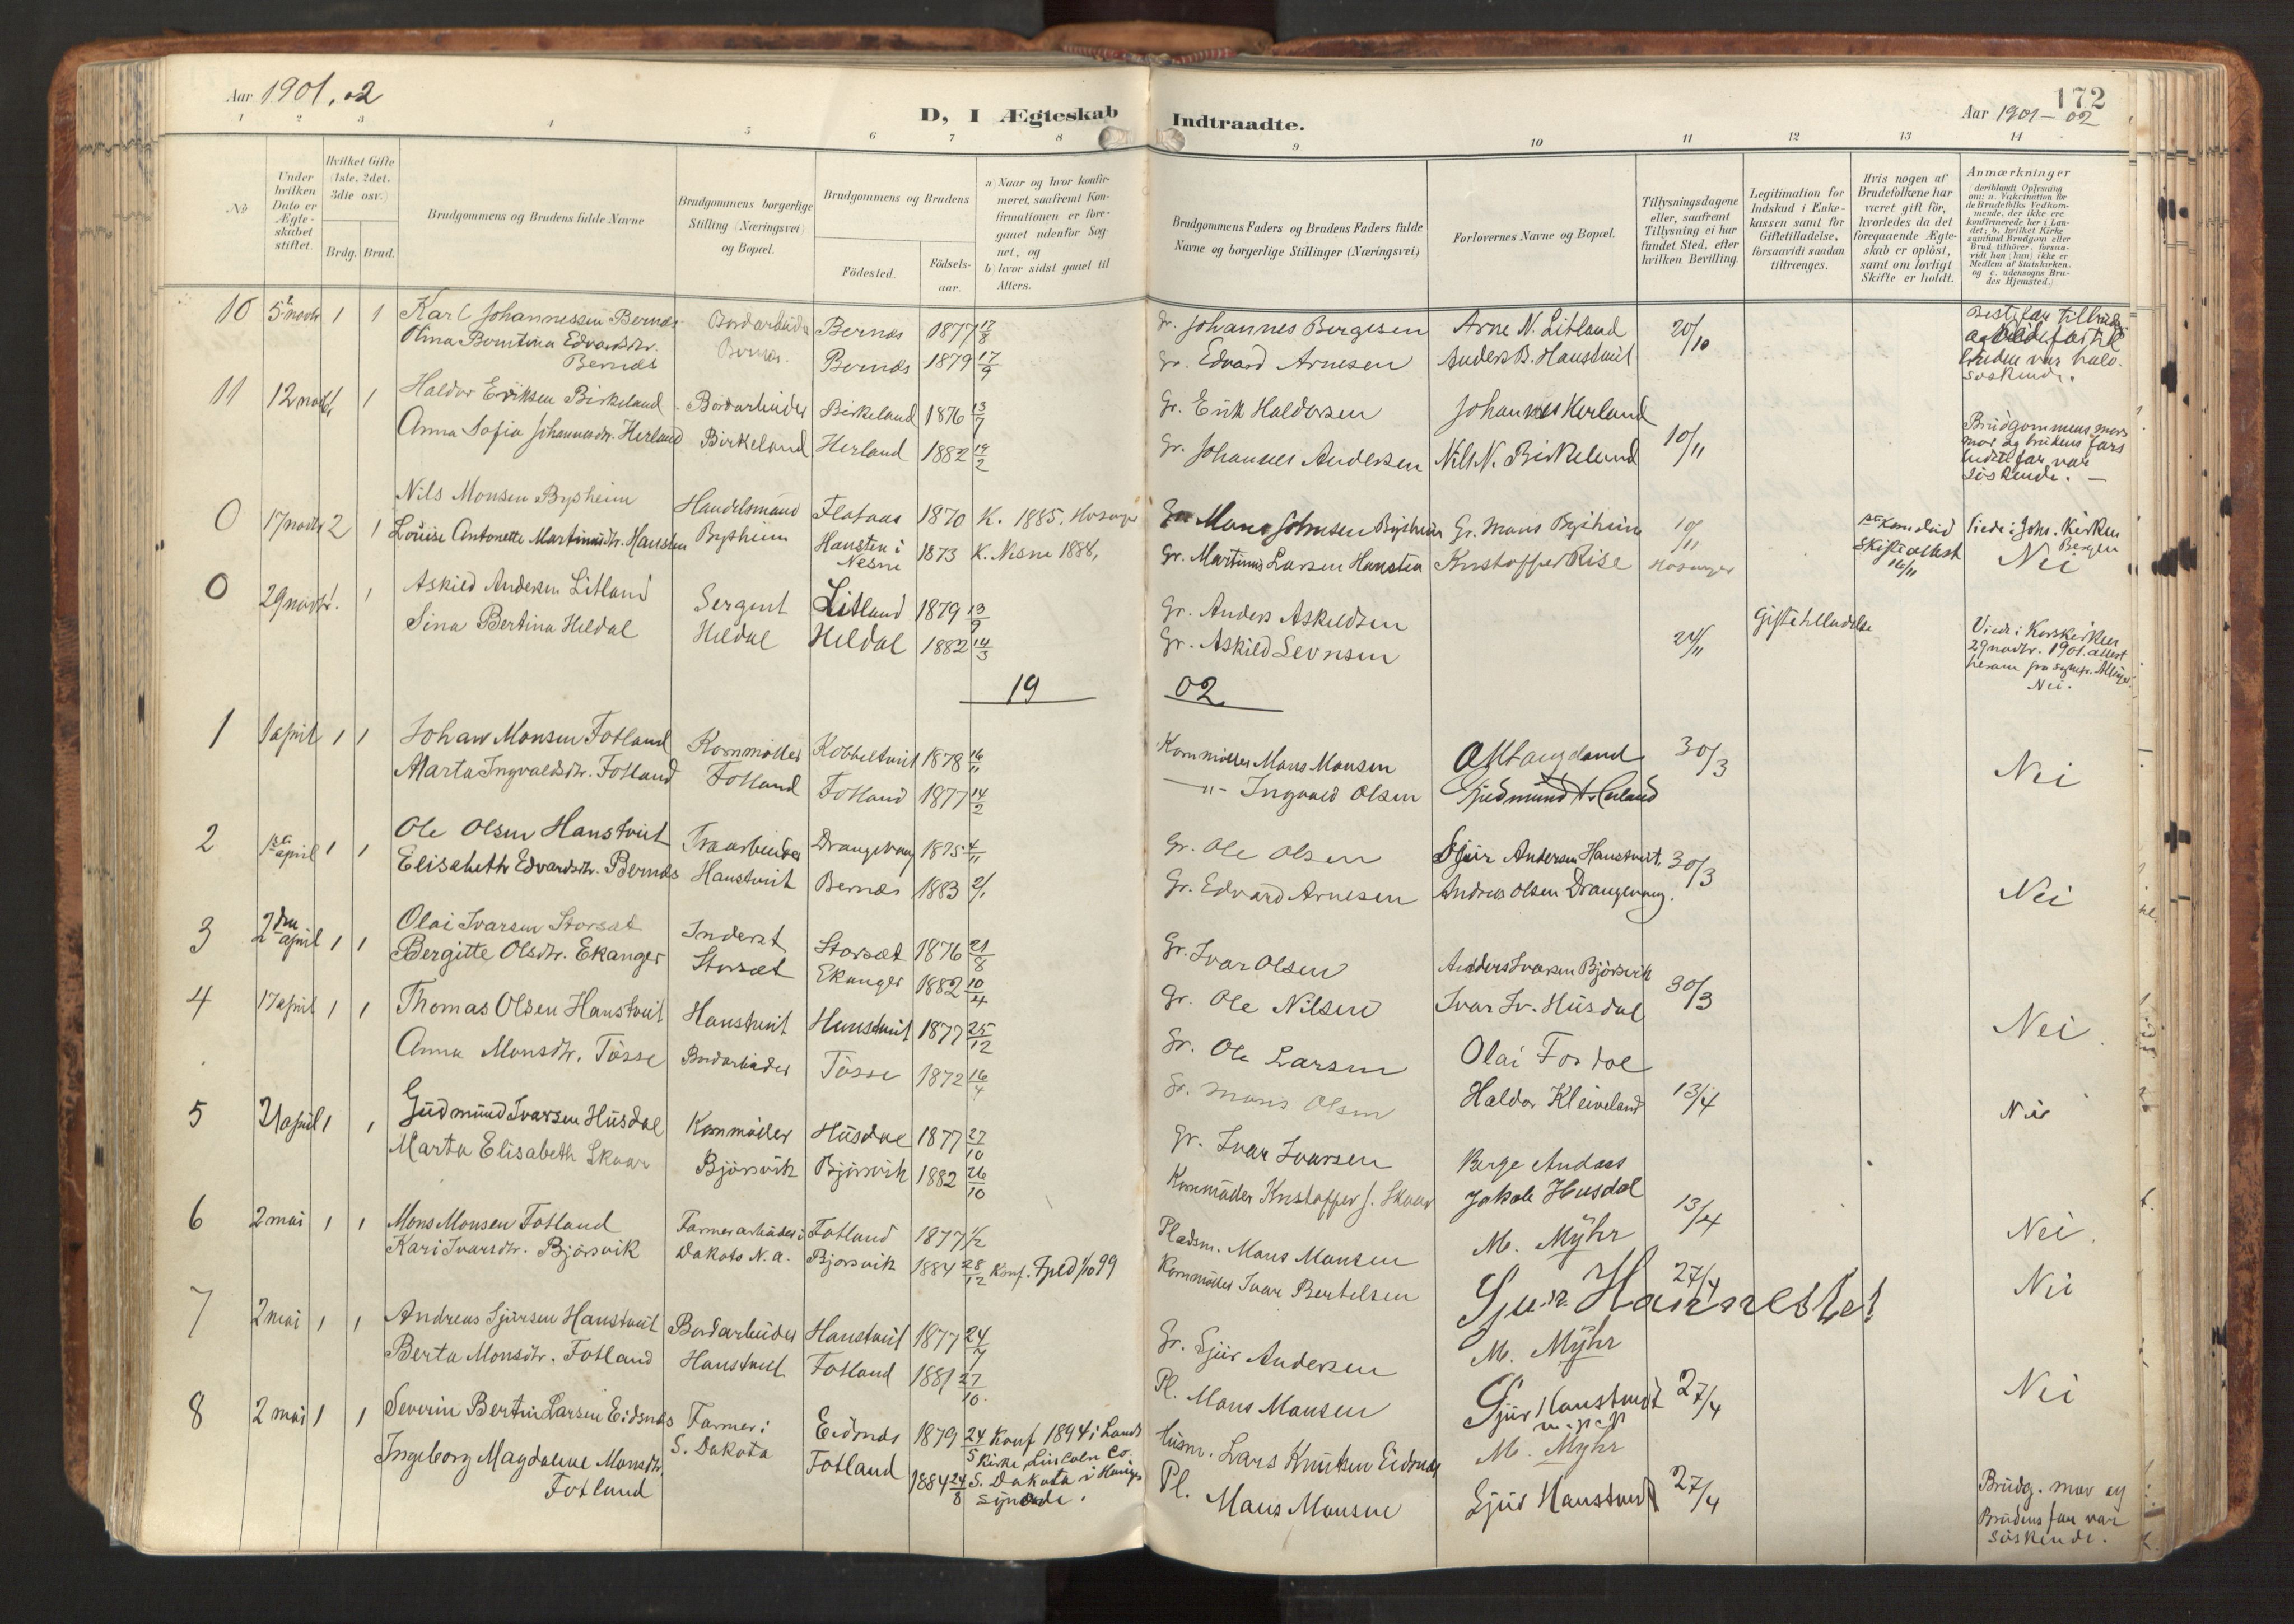 Aar 1901, 02
D, I Ægteskab
Indtraadte.
Aar 1901-02
172
1 2 3 4 5 6 7 8
9 10 11 12 13 14
No
Under hvilken Dato er Ægteskabet stiftet.
Hvilket Gifte (1ste, 2det. 3die osv.)
Brdg. Brud.
Brudgommens og Brudens fulde Navne
Brudgommens borgerlige Stilling (Næringsvei) og Bopæl.
Brudgommens og Brudens
Födested.
Födsels-aar.
a) Naar og hvor konfirmeret, saafremt Konfirmationen er foregaaet udenfor Sognet, og
b) hvor sidst gaaet til Alters.
Brudgommens Faders og Brudens Faders fulde Navne og borgerlige Stillinger (Næringsvei)
Forlovernes Navne og Bopæl.
Tillysningsdagene eller, saafremt Tillysning ei har fundet Sted, efter hvilken Bevilling.
Legitimation for Indskud i Enkekassen samt for Giftetilladelse, forsaavidt saadan tiltrænges.
Hvis nogen af Brudefolkene har været gift för, hvorledes da det foregaaende Ægteskab er oplöst, samt om lovligt Skifte er holdt.
Anmærkninger
(deriblandt Oplysning om: a. Vakcination for de Brudefolks Vedkommende, der ikke ere konfirmerede her i Landet; b. hvilket Kirkesamfund Brudgom eller Brud tilhörer, forsaavidt han (hun) ikke er Medlem af Statskirken, og c. udensogns Brudes Hjemsted.)
10 5 novbr 1 1 Karl Johannessen Bernæs Bordarbeider Bernæs 1877 17/8 Gr. Johannes Bergesen Arne N. Litland 20/10
Olina Berntina Edvardsdtr. Bernæs Bernæs. Bernæs 1879 17/9 Gr. Edvard Arnesen Anders B. Hanstveit
söskende.
11 12 novbr 1 1 Haldor Eriksen Birkeland Bordarbeider Birkeland 1876 13/7 Gr. Erik Haldorsen Johannes Herland 10/11
Anna Sofia Johannesdtr. Herland Birkeland Herland 1882 Gr. Johannes Andersen Nils N. Birkeland
Brudgommens mors
mor og brudens fars
var
söskende. —
0 17 novbr 2 1 Nils Monsen Bysheim Handelsmand Flataas 1870 K. 1885. Hosanger Mons Johnsen Bysheim Gr. Mons Bysheim 10/11 Hosanger
Louise Antonette Martinusdtr. Hansten Bysheim Hansten i Nesne 1873 K. Nesne 1888, Gr. Martinus Larsen Hansten Kristoffer Rise
Skifteattest 16/11
Viede i Johs. Kirken
Bergen
Nei
0 29 novbr. 1 Askild Andersen Litland Sergent Litland 1879 13/9 Gr. Anders Askildsen
Sina Bertina Heldal Heldal Heldal 1882 14/3 Gr. Askild Sevnsen 24/11 Giftetilladelse
Viede i Korskirken
29 novbr. 1901. attest
Nei.
19 02
1 1 april 1 1 Johan Monsen Fotland Kornmöller Kobbeltveit 1878 16/11 Kornmöller Mons Monsen 30/3
Marta Ingvaldsdtr. Fotland Fotland Fotland 1877 14/2 —"— Ingvald Olsen Gudmund Herland Nei
2 1ste april 1 1 Ole Olsen Hanstveit Træarbeider Drangevaag 1875 4/11 Gr. Ole Olsen Sjur Andersen Hanstveit. 30/3
Elisabeth Edvardsdtr. Bernæs Hanstveit Bernæs 1883 2/1 Gr. Edvard Arnesen Andreas Olsen Drangevaag. Nei
3 2den april 1 1 Olai Ivarsen Storsæt Inderst Storsæt 1876 21/8 Gr. Ivar Olsen Anders Ivarsen Björsvik 30/3
Bergitte Olsdtr. Ekanger Storsæt Ekanger 1882 10/4 Gr. Ole Nilsen Ivar Iv. Husdal Nei.
4 17 april 1 1 Thomas Olsen Hanstveit Hanstveit Hanstveit 1877 25/12 Gr. Ole Larsen Olai Fosdal 13/4
Anna Monsdtr. Tösse Bordarbeider Tösse 1872 16/4 Gr. Mons Olsen Haldor Kleiveland Nei
5 21 april 1 1 Gudmund Ivarsen Husdal Kornmöller Husdal 1877 27/10 Gr. Ivar Ivarsen Berge Andaas 13/4
Marta Elisabeth Skaar Björsvik Björsvik 1882 26/10 Kornmöller Kristoffer J. Skaar Jakob Husdal Nei.
6 2 mai 1 1 Mons Monsen Fotland Farmerarbeider i Fotland 1877 1/2 Pladsm. Mons Monsen M. Myhr 27/4
Kari Ivarsdtr. Björsvik Dakota N.A. Björsvik 1884 28/12 Konf. Kornmöller Ivar Bertelsen Nei
7 2 mai 1 1 Andreas Sjursen Hanstveit Bordarbeider Hanstveit 1877 24/7 Gr. Sjur Andersen M. Myhr 27/4
Berta Monsdtr. Fotland Hanstveit Fotland 1881 27/10. Pl. Mons Monsen Sjur Hanstveit Nei
8 2 mai 1 1 Severin Bertin Larsen Eidsnes Farmer i Eidsnes 1879 24/5 Konf 1894 i Lands Kirke, Lincoln Co. S. Dakota i Hauges Synode. Husm. Lars Knutsen Eidsnes M. Myhr 27/4
Ingeborg Magdalene Monsdtr. Fotland S. Dakota Fotland 1884 24/8 Pl. Mons Monsen Sjur Hanstveit
Brudg. mor og
Brudens far var
söskende.